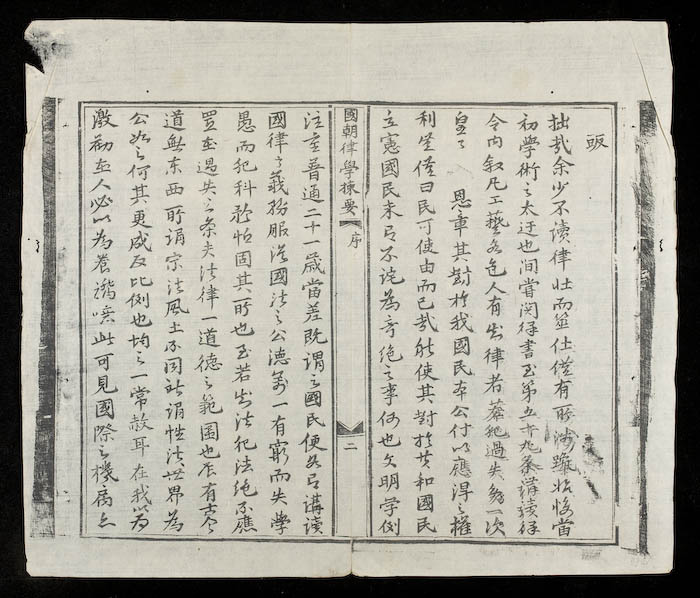 拙哉余少不读律壮而筮仕僅有所涉躐始悔當
初學術之太迂也间嘗閱律書至第五十九条講读律
令内叙凡工藝各色人有知律者犯過失免一次
皇〻恩章其對於我國民本公付以應得之權
利豈僅曰民可使由而已哉能使其對於共和國民
立憲國民未必不詫為奇絶之事何也文明学例
國朝律學揀要
序
二
注重普通二十一歲當差既謂之國民便各有講读
國律之義務服從國法之公德萬一有窮而失學
愚而犯科矜怕固其所也至若知法犯法绝不應
置在過失之条夫法律一道德之範圍也在有古今
道無东西所謂宗法風土不同所謂性法世界為
公如之何其更成反比例也均之一常赦耳在我以為
激劝在人必以為養㿈嘻此可見國際之機局之